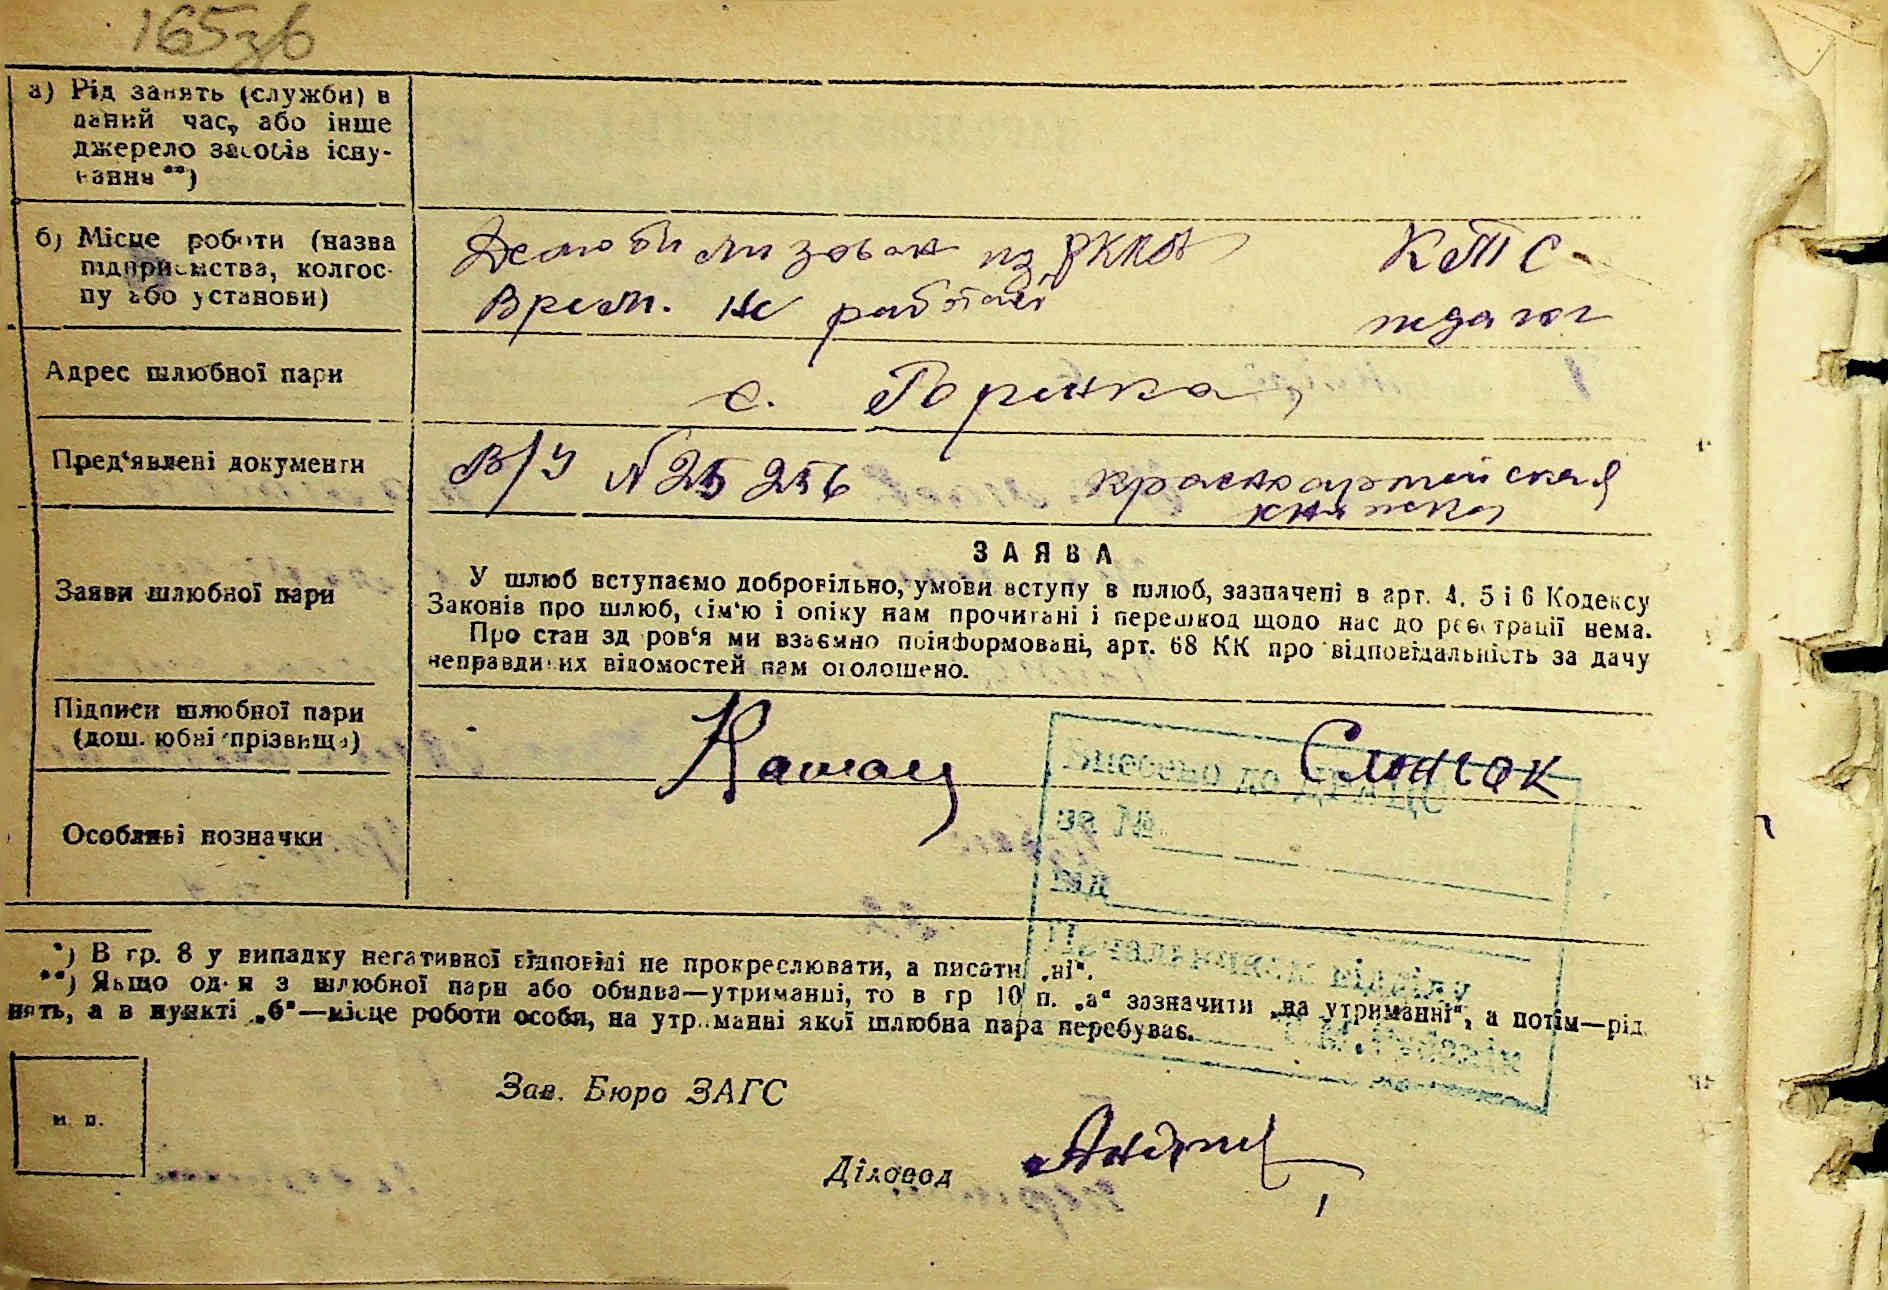 165зв
а) Рід занять (служби) в
даний час, або інше
джерело засобів існу-
вання **)
б) Місце роботи (назва
підприємства, колгос-
пу або установи)
Демобилизован из РККА
Врем. не работает
КТС
педагог
Адрес шлюбної пари
с. Горенка
Пред‘явлені документи
В/У №25256
красноармейская
книжка
Заяви шлюбної пари
ЗАЯВА
У шлюб вступаємо добровільно, умови вступу в шлюб, зазначені в арт. 4, 5 і 6 Кодексу
Законів про шлюб, сім‘ю і опіку нам прочитані і перешкод щодо нас до реєстрації нема.
Про стан здоров‘я ми взаємно поінформовані, арт. 68 КК про відповідальність за дачу
неправдивих відомостей нам оголошено.
Підписи шлюбної пари
(дошлюбні прізвища)
Слинчок
Особливі позначки
*) В гр. 8 у випадку негативної відповіді не прокреслювати, а писати „ні“.
**) Якщо один з шлюбної пари або обидва—утриманці, то в гр 10 п. „а“ зазначити „на утриманні“, а потім—рід
нять, а в пункті „б“—місце роботи особи, на утриманні якої шлюбна пара перебуває.
м. п.
Зав. Бюро ЗАГС
Діловод